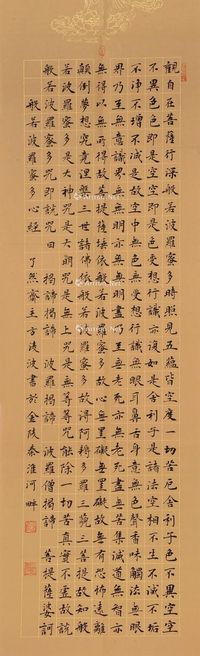 觀自在菩薩行深般若波羅蜜多時照見五蘊皆空度一切苦厄舍利子色不異空空
不異色色即是空空即是色受想行識亦復如是舍利子是諸法空相不生不滅不垢
不淨不增不減是故空中無色無受想行識無眼耳鼻舌身意無色聲香味觸法無眼
界乃至無意識界無無明亦無無明盡乃至無老死亦無老死盡無苦集滅道無智亦
無得以無所得故菩提薩埵依般若波羅蜜多故心無罣礙無罣礙故無有恐怖遠離
顛倒夢想究竟涅槃三世諸佛依般若波羅蜜多故得阿耨多羅三藐三菩提故知般
若波羅蜜多是大神咒是大明咒是無上咒是無等等咒能除一切苦真實不虛故說
般若波羅蜜多咒即說咒曰 揭諦揭諦 波羅揭諦 波羅僧揭諦 菩提薩婆訶
般若波羅蜜多心經 了然齋主方凌波書於金陵秦淮河畔